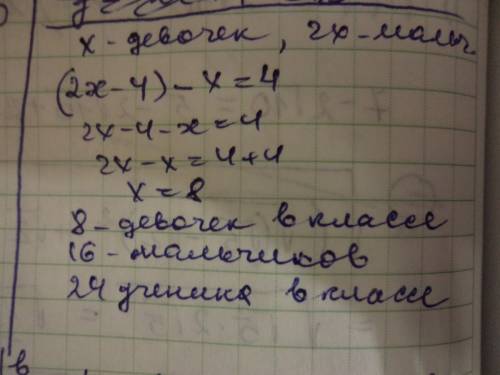 х - девочек, 2х - мальч.
(2х - 4) - х = 4
2х - 4 - х = 4
2х - х = 4 + 4
х = 8
8 - девочек в классе
16 - мальчиков
24 ученика в классе